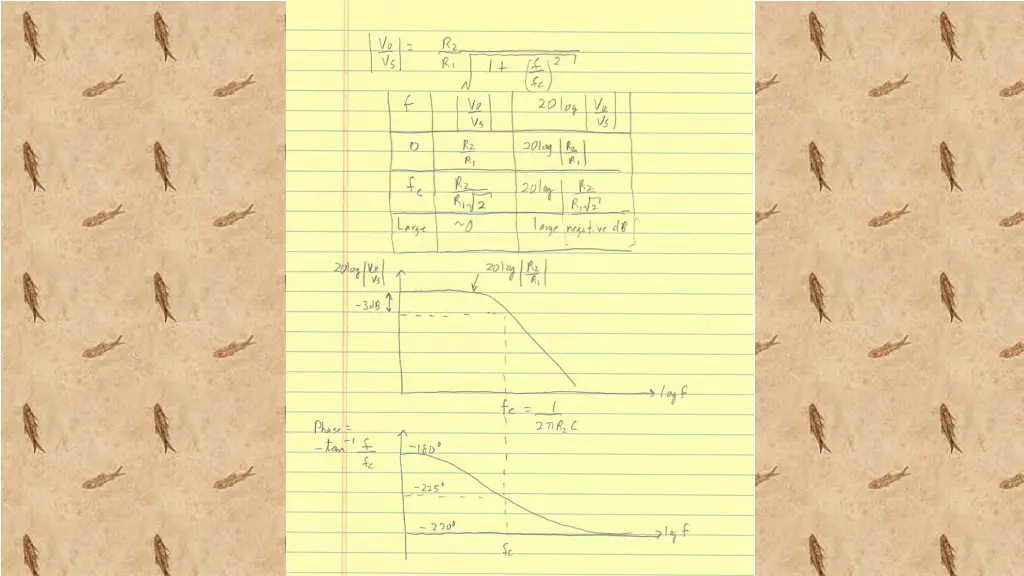 |Vo/Vs| = R2/R1 1/√(1 + (f/fc)^2)
f |Vo/Vs| 20log |Vo/Vs|
0 R2/R1 20log |R2/R1|
fc R2/(R1√2) 20log |R2/(R1√2)|
Large ~0 large negative dB
20log |Vo/Vs| 20log |R2/R1|
-3dB
log f
fc = 1/(2πR2C)
Phase =
-tan^-1 f/fc
-180°
-225°
-270° log f
fc